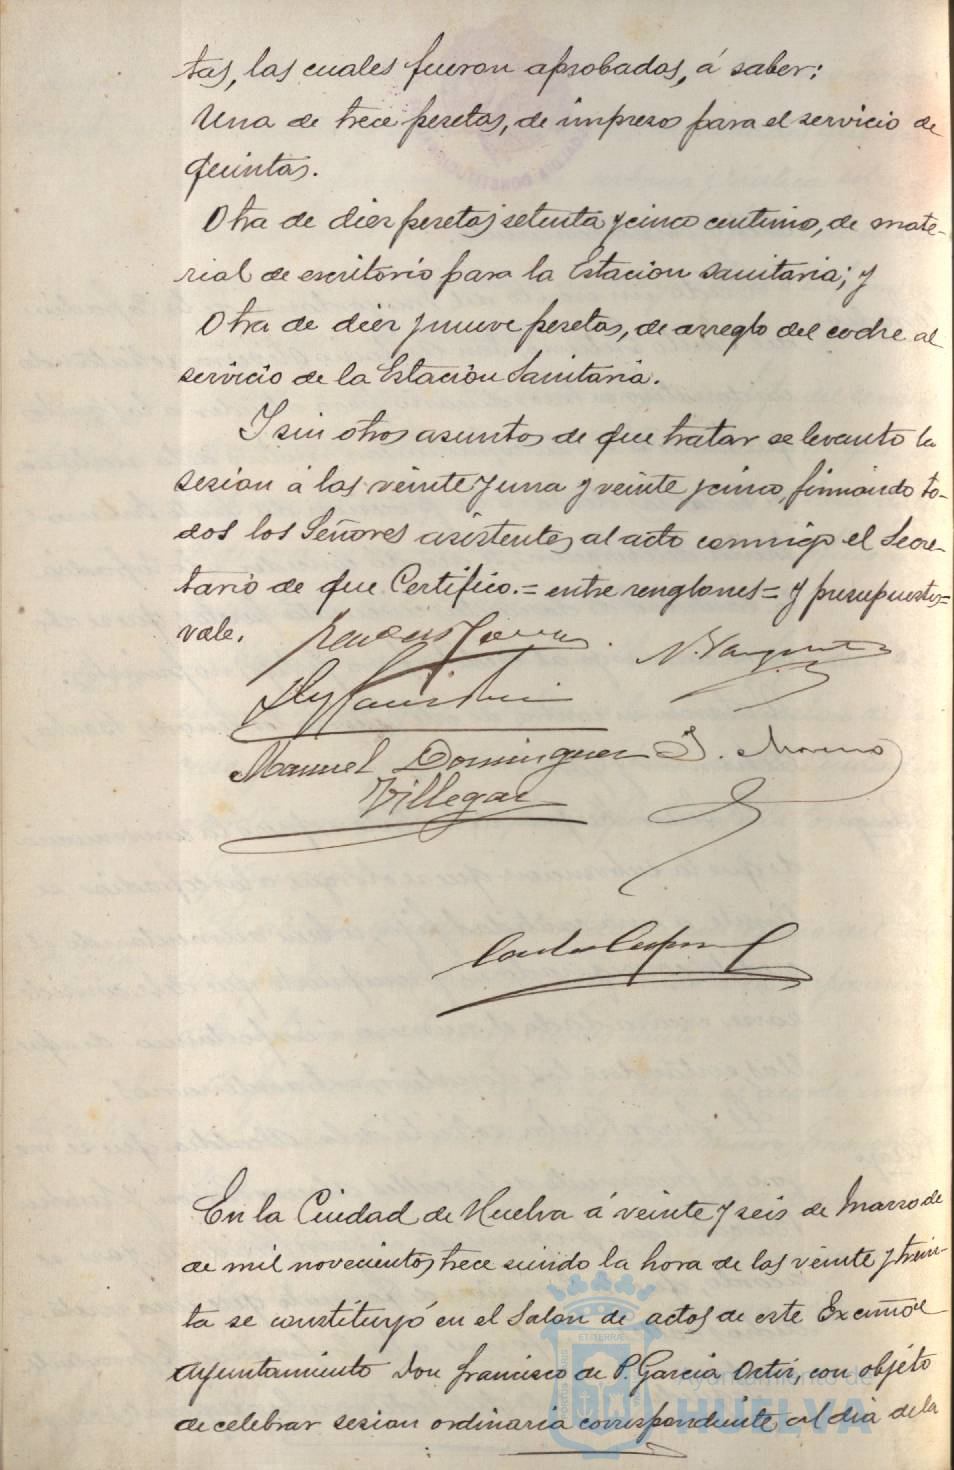 tas, las cuales fueron aprobadas, á saber:
Una de trece pesetas, de impresos para el servicio de
quintas.
Otra de diez pesetas setenta y cinco centimos, de mate-
rial de escritorio para la Estacion sanitaria; y
Otra de diez y nueve pesetas, de arreglo del coche al
servicio de la Estación Sanitaria.
Y sin otros asuntos de que tratar se levantó la
sesion á las veinte y una y veinte y cinco, firmando to-
dos los Señores asistentes al acto conmigo el Secre-
tario de que Certifico.= entre renglones= y presupuestos=
vale.
N. Vazquez
Manuel Dominguez J. Moreno
Villegas
En la Ciudad de Huelva á veinte y seis de Marzo de
de mil novecientos trece siendo la hora de las veinte y trein-
ta se constituyó en el Salon de actos de este Excmo
Ayuntamiento Don Francisco de P. Garcia Ortiz, con objeto
de celebrar sesion ordinaria correspondiente al dia de la
Ayuntamiento de
HUELVA